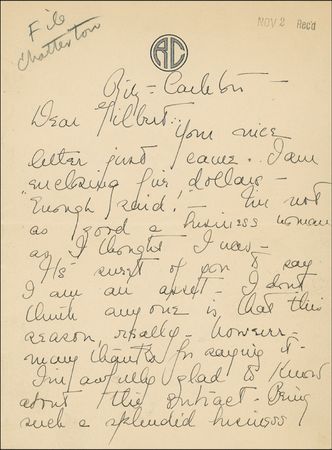 File
Chatterton
NOV 2 Rec'd
RC
Ritz-Carlton
Dear Gilbert..
Your nice
letter just came.. I am
enclosing five dollars -
"Enough said"! - I'm not
as good a business woman
as I thought I was -
It's sweet of you to say
I am an asset - I don't
think any one is, that this
season, really - however -
many thanks for saying it.
I'm awfully glad to know
about the contract - Being
such a splendid business